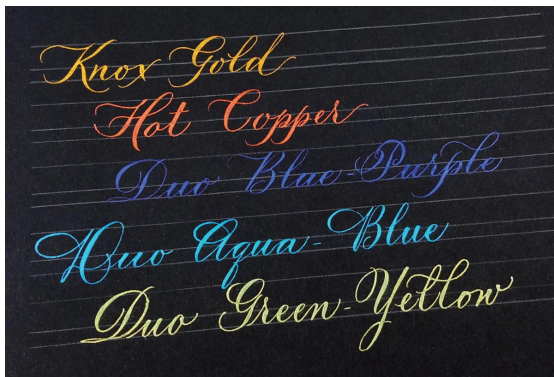 Knox Gold
Hot Copper
Duo Blue-Purple
Duo Aqua-Blue
Duo Green-Yellow